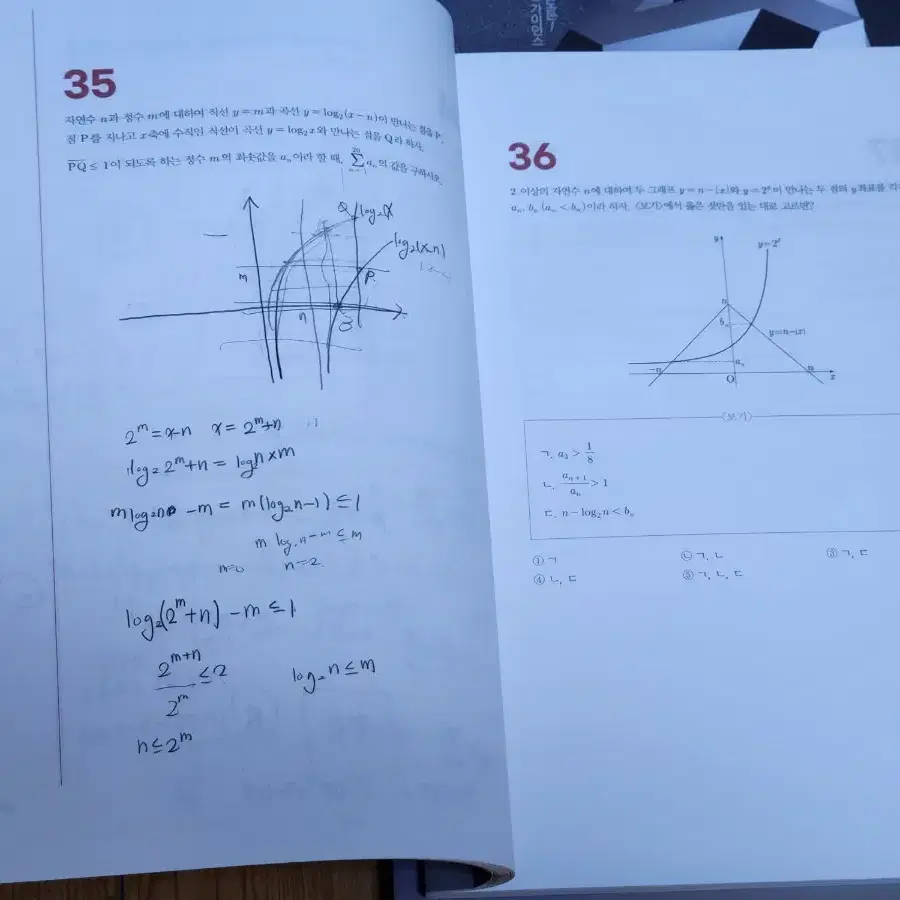 35
자연수 n과 정수 m에 대하여 직선 y = m과 곡선 y = log₂(x − n)이 만나는 점을 P,
점 P를 지나고 x축에 수직인 직선이 곡선 y = log₂x와 만나는 점을 Q라 하자.
PQ ≤ 1이 되도록 하는 정수 m의 최솟값을 aₙ이라 할 때, ∑ aₙ의 값을 구하시오.
Q log₂x
log₂(x-n)
m
P
n
2^m = x-n x = 2^m+n
log₂ 2^m+n = log n × m
m log₂n - m = m(log₂n-1) ≤ 1
m log₂n - m ≤ m
m=0 n=2
log₂(2^m+n) - m ≤ 1
2^m+n / 2^m ≤ 2 log₂n ≤ m
n ≤ 2^m
36
2 이상의 자연수 n에 대하여 두 그래프 y = n − |x|와 y = 2^x이 만나는 두 점의 y좌표를
aₙ, bₙ (aₙ < bₙ)이라 하자. 〈보기〉에서 옳은 것만을 있는 대로 고르면?
y
y=2^x
n
bₙ
y=n−|x|
aₙ
−n O n x
〈보기〉
ㄱ. a₃ > 1/8
ㄴ. aₙ₊₁/aₙ > 1
ㄷ. n − log₂n < bₙ
① ㄱ ② ㄱ, ㄴ ③ ㄱ, ㄷ
④ ㄴ, ㄷ ⑤ ㄱ, ㄴ, ㄷ